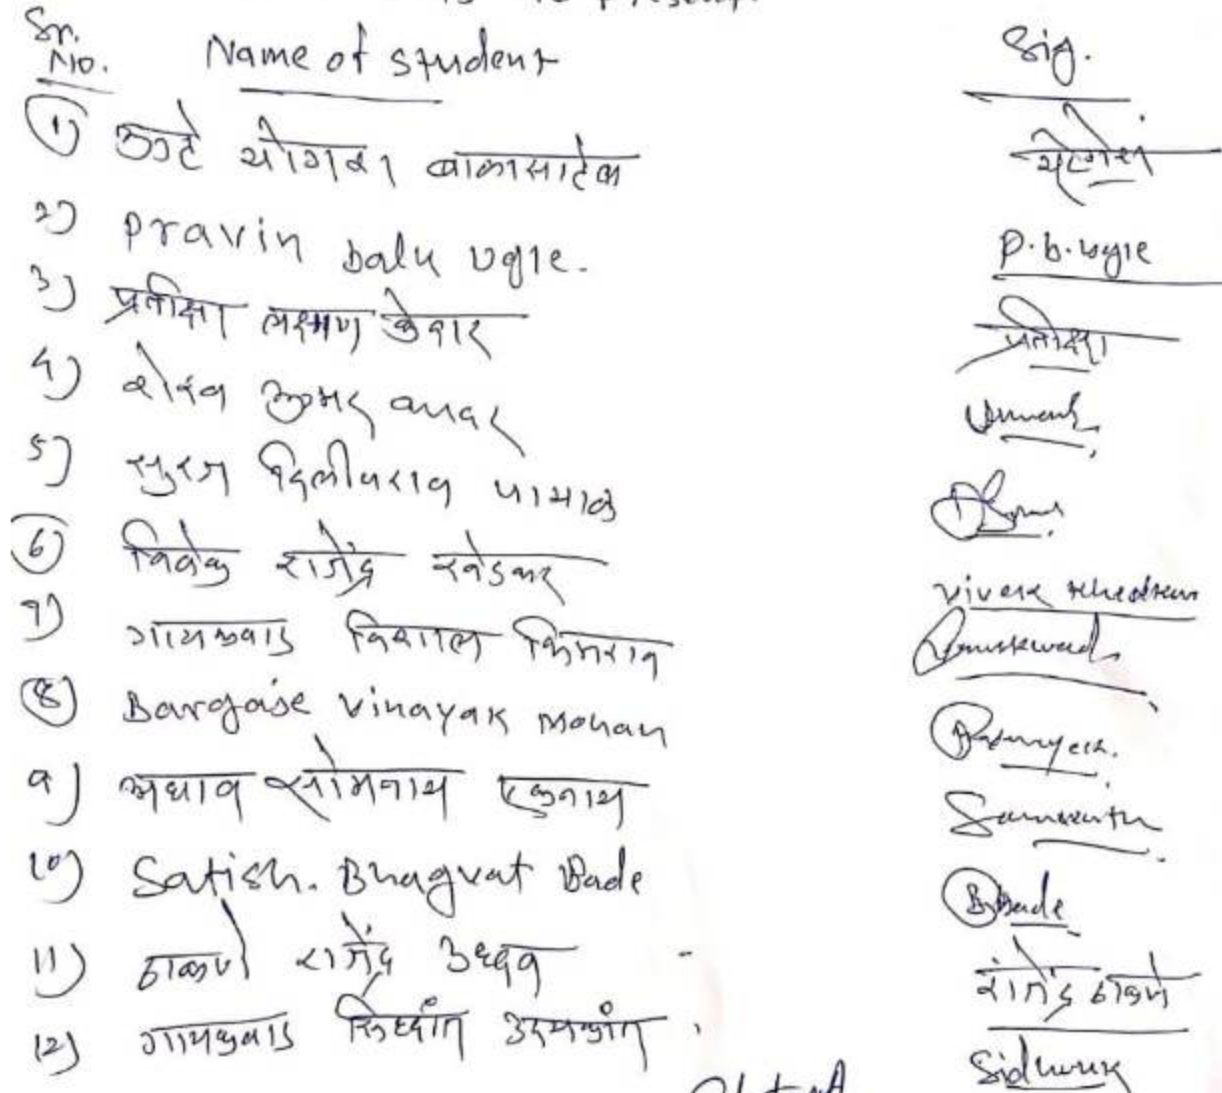 Sr. No. Name of student Sig.
1) योगेश बाळासाहेब योगेश
2) Pravin balu ugle. P.b.ugle
3) प्रतीक्षा लक्ष्मण केदार प्रतीक्षा
4) शेख उमर अनवर
5) सुरज दिलीपराव
6) विवेक राजेंद्र खेडकर vivek Khedkar
7) गायकवाड विशाल भिमराव
8) Bargaje Vinayak Mohan
9) आघाव सोमनाथ एकनाथ Somnath
10) Satish. Bhagvat Bade Bade
11) ढाकणे राजेंद्र उद्धव राजेंद्र ढाकणे
12) गायकवाड सिध्दांत उदयकांत